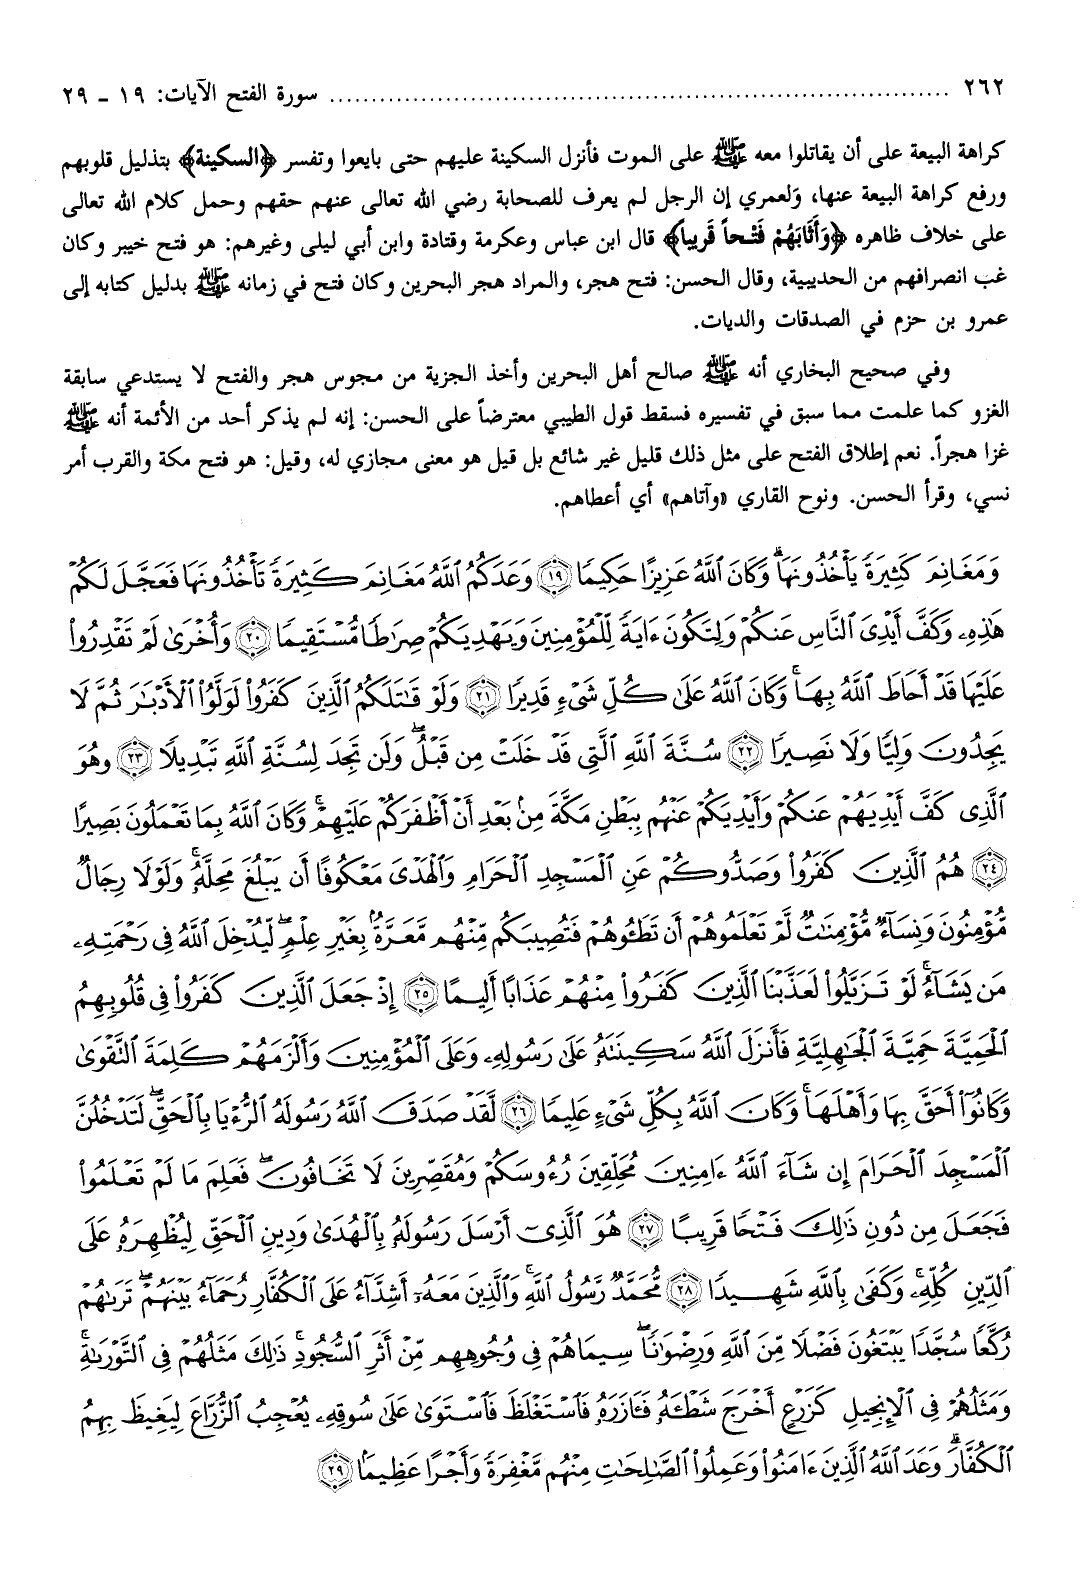 ٢٦٢ ........ سورة الفتح الآيات: ١٩ ـ ٢٩
كراهة البيعة على أن يقاتلوا معه ﷺ على الموت فأنزل السكينة عليهم حتى بايعوا وتفسر ﴿السكينة﴾ بتذليل قلوبهم
ورفع كراهة البيعة عنها، وَلعمري إن الرجل لم يعرف للصحابة رضي الله تعالى عنهم حقهم وحمل كلام الله تعالى
على خلاف ظاهره ﴿وَأَثَابَهُمْ فَتْحاً قَرِيباً﴾ قال ابن عباس وعكرمة وقتادة وابن أبي ليلى وغيرهم: هو فتح خيبر وكان
غب انصرافهم من الحديبية، وقال الحسن: فتح هجر، والمراد هجر البحرين وكان فتح في زمانه ﷺ بدليل كتابه إلى
عمرو بن حزم في الصدقات والديات.
وفي صحيح البخاري أنه ﷺ صالح أهل البحرين وأخذ الجزية من مجوس هجر والفتح لا يستدعي سابقة
الغزو كما علمت مما سبق في تفسيره فسقط قول الطيبي معترضاً على الحسن: إنه لم يذكر أحد من الأئمة أنه ﷺ
غزا هجراً. نعم إطلاق الفتح على مثل ذلك قليل غير شائع بل قيل هو معنى مجازي له، وقيل: هو فتح مكة والقرب أمر
نسي، وقرأ الحسن. ونوح القاري «وآتاهم» أي أعطاهم.
وَمَغَانِمَ كَثِيرَةً يَأْخُذُونَهَا ۗ وَكَانَ اللَّهُ عَزِيزًا حَكِيمًا ١٩ وَعَدَكُمُ اللَّهُ مَغَانِمَ كَثِيرَةً تَأْخُذُونَهَا فَعَجَّلَ لَكُمْ
هَٰذِهِ وَكَفَّ أَيْدِيَ النَّاسِ عَنكُمْ وَلِتَكُونَ ءَايَةً لِّلْمُؤْمِنِينَ وَيَهْدِيَكُمْ صِرَاطًا مُّسْتَقِيمًا ٢٠ وَأُخْرَىٰ لَمْ تَقْدِرُوا
عَلَيْهَا قَدْ أَحَاطَ اللَّهُ بِهَا ۚ وَكَانَ اللَّهُ عَلَىٰ كُلِّ شَيْءٍ قَدِيرًا ٢١ وَلَوْ قَاتَلَكُمُ الَّذِينَ كَفَرُوا لَوَلَّوُا الْأَدْبَارَ ثُمَّ لَا
يَجِدُونَ وَلِيًّا وَلَا نَصِيرًا ٢٢ سُنَّةَ اللَّهِ الَّتِي قَدْ خَلَتْ مِن قَبْلُ ۖ وَلَن تَجِدَ لِسُنَّةِ اللَّهِ تَبْدِيلًا ٢٣ وَهُوَ
الَّذِي كَفَّ أَيْدِيَهُمْ عَنكُمْ وَأَيْدِيَكُمْ عَنْهُم بِبَطْنِ مَكَّةَ مِنۢ بَعْدِ أَنْ أَظْفَرَكُمْ عَلَيْهِمْ ۚ وَكَانَ اللَّهُ بِمَا تَعْمَلُونَ بَصِيرًا
٢٤ هُمُ الَّذِينَ كَفَرُوا وَصَدُّوكُمْ عَنِ الْمَسْجِدِ الْحَرَامِ وَالْهَدْيَ مَعْكُوفًا أَن يَبْلُغَ مَحِلَّهُ ۚ وَلَوْلَا رِجَالٌ
مُّؤْمِنُونَ وَنِسَاءٌ مُّؤْمِنَاتٌ لَّمْ تَعْلَمُوهُمْ أَن تَطَئُوهُمْ فَتُصِيبَكُم مِّنْهُم مَّعَرَّةٌ بِغَيْرِ عِلْمٍ ۖ لِّيُدْخِلَ اللَّهُ فِي رَحْمَتِهِ
مَن يَشَاءُ ۚ لَوْ تَزَيَّلُوا لَعَذَّبْنَا الَّذِينَ كَفَرُوا مِنْهُمْ عَذَابًا أَلِيمًا ٢٥ إِذْ جَعَلَ الَّذِينَ كَفَرُوا فِي قُلُوبِهِمُ
الْحَمِيَّةَ حَمِيَّةَ الْجَاهِلِيَّةِ فَأَنزَلَ اللَّهُ سَكِينَتَهُ عَلَىٰ رَسُولِهِ وَعَلَى الْمُؤْمِنِينَ وَأَلْزَمَهُمْ كَلِمَةَ التَّقْوَىٰ
وَكَانُوا أَحَقَّ بِهَا وَأَهْلَهَا ۚ وَكَانَ اللَّهُ بِكُلِّ شَيْءٍ عَلِيمًا ٢٦ لَّقَدْ صَدَقَ اللَّهُ رَسُولَهُ الرُّءْيَا بِالْحَقِّ ۖ لَتَدْخُلُنَّ
الْمَسْجِدَ الْحَرَامَ إِن شَاءَ اللَّهُ ءَامِنِينَ مُحَلِّقِينَ رُءُوسَكُمْ وَمُقَصِّرِينَ لَا تَخَافُونَ ۖ فَعَلِمَ مَا لَمْ تَعْلَمُوا
فَجَعَلَ مِن دُونِ ذَٰلِكَ فَتْحًا قَرِيبًا ٢٧ هُوَ الَّذِي أَرْسَلَ رَسُولَهُ بِالْهُدَىٰ وَدِينِ الْحَقِّ لِيُظْهِرَهُ عَلَى
الدِّينِ كُلِّهِ ۚ وَكَفَىٰ بِاللَّهِ شَهِيدًا ٢٨ مُّحَمَّدٌ رَّسُولُ اللَّهِ ۚ وَالَّذِينَ مَعَهُ أَشِدَّاءُ عَلَى الْكُفَّارِ رُحَمَاءُ بَيْنَهُمْ ۖ تَرَاهُمْ
رُكَّعًا سُجَّدًا يَبْتَغُونَ فَضْلًا مِّنَ اللَّهِ وَرِضْوَانًا ۖ سِيمَاهُمْ فِي وُجُوهِهِم مِّنْ أَثَرِ السُّجُودِ ۚ ذَٰلِكَ مَثَلُهُمْ فِي التَّوْرَاةِ ۚ
وَمَثَلُهُمْ فِي الْإِنجِيلِ كَزَرْعٍ أَخْرَجَ شَطْأَهُ فَآزَرَهُ فَاسْتَغْلَظَ فَاسْتَوَىٰ عَلَىٰ سُوقِهِ يُعْجِبُ الزُّرَّاعَ لِيَغِيظَ بِهِمُ
الْكُفَّارَ ۗ وَعَدَ اللَّهُ الَّذِينَ ءَامَنُوا وَعَمِلُوا الصَّالِحَاتِ مِنْهُم مَّغْفِرَةً وَأَجْرًا عَظِيمًا ٢٩